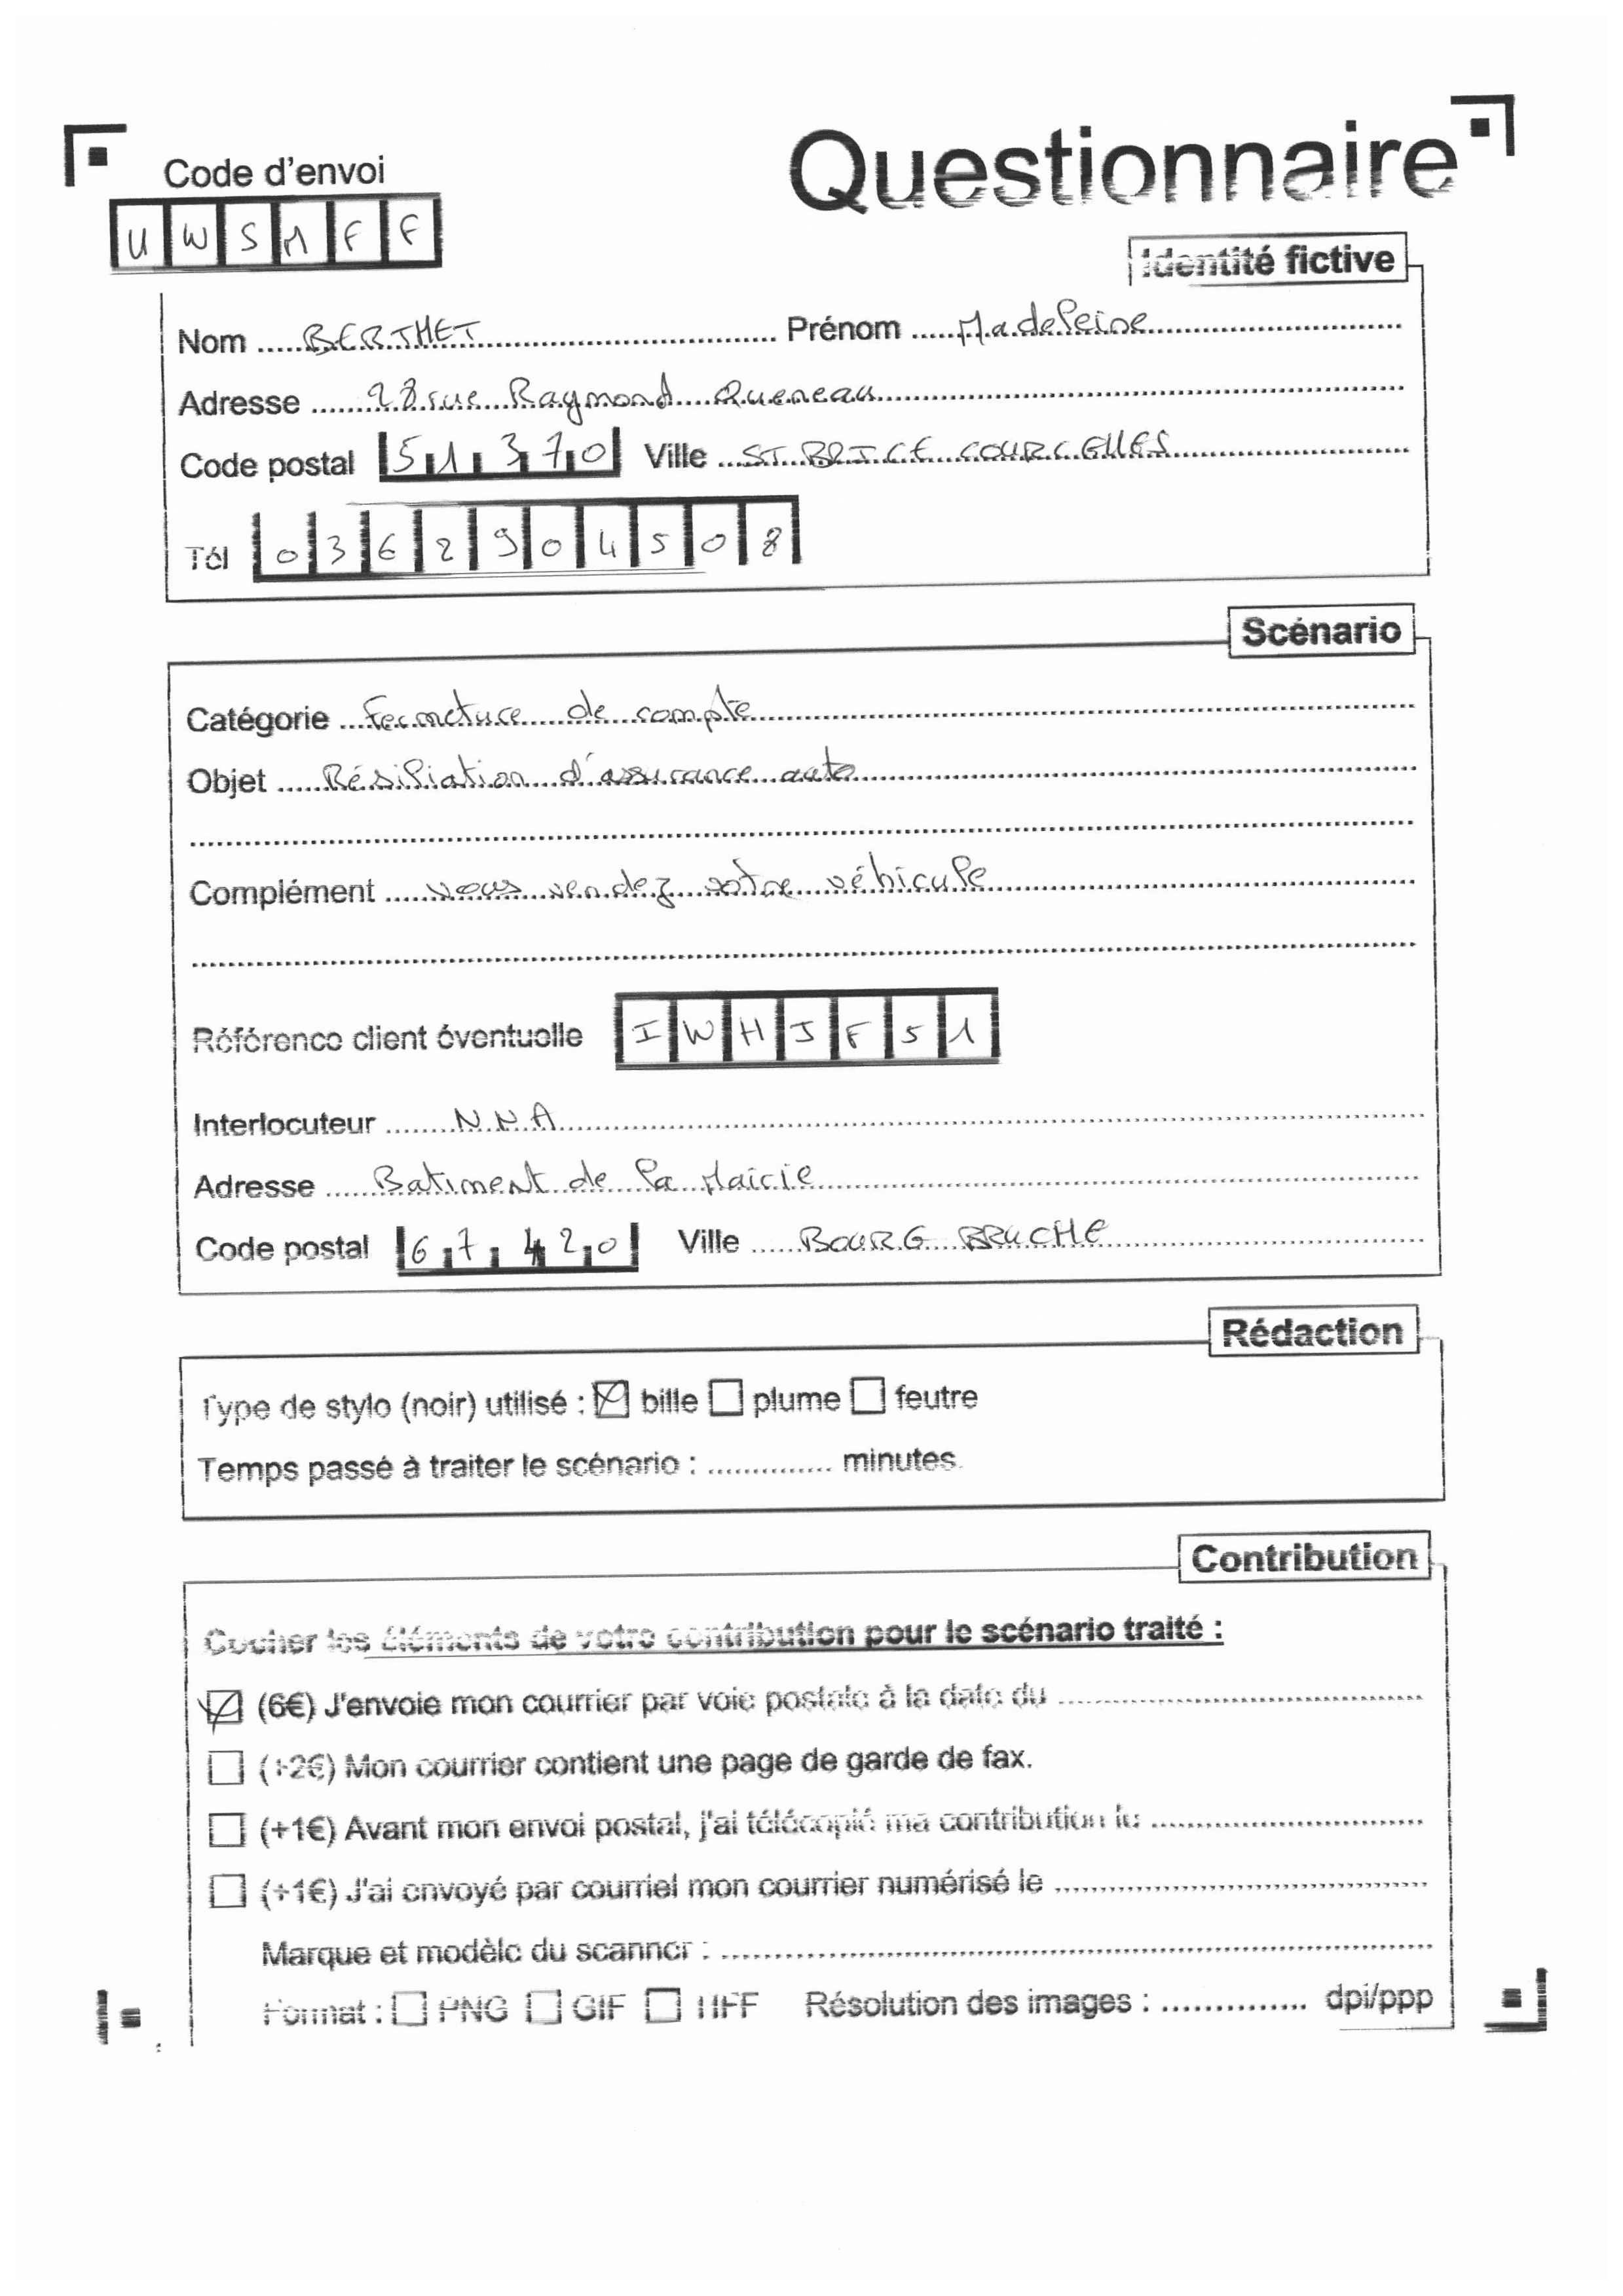 Questionnaire
Code d'envoi
UWSMFF
Identité fictive
Nom BERTHET Prénom Madeleine
Adresse 28 rue Raymond Queneau
Code postal 51370 Ville ST BRICE COURCELLES
Tél 0362904508
Scénario
Catégorie Fermeture de compte
Objet Résiliation d'assurance auto
Complément vous vendez votre véhicule
Référence client éventuelle IWHJF51
Interlocuteur NNA
Adresse Batiment de la Mairie
Code postal 67420 Ville BOURG BRUCHE
Rédaction
Type de stylo (noir) utilisé : bille plume feutre
Temps passé à traiter le scénario : minutes.
Contribution
Cocher les éléments de votre contribution pour le scénario traité :
(6€) J'envoie mon courrier par voie postale à la date du
(+2€) Mon courrier contient une page de garde de fax.
(+1€) Avant mon envoi postal, j'ai télécopié ma contribution le
(+1€) J'ai envoyé par courriel mon courrier numérisé le
Marque et modèle du scanner :
Format : PNG GIF TIFF Résolution des images : dpi/ppp